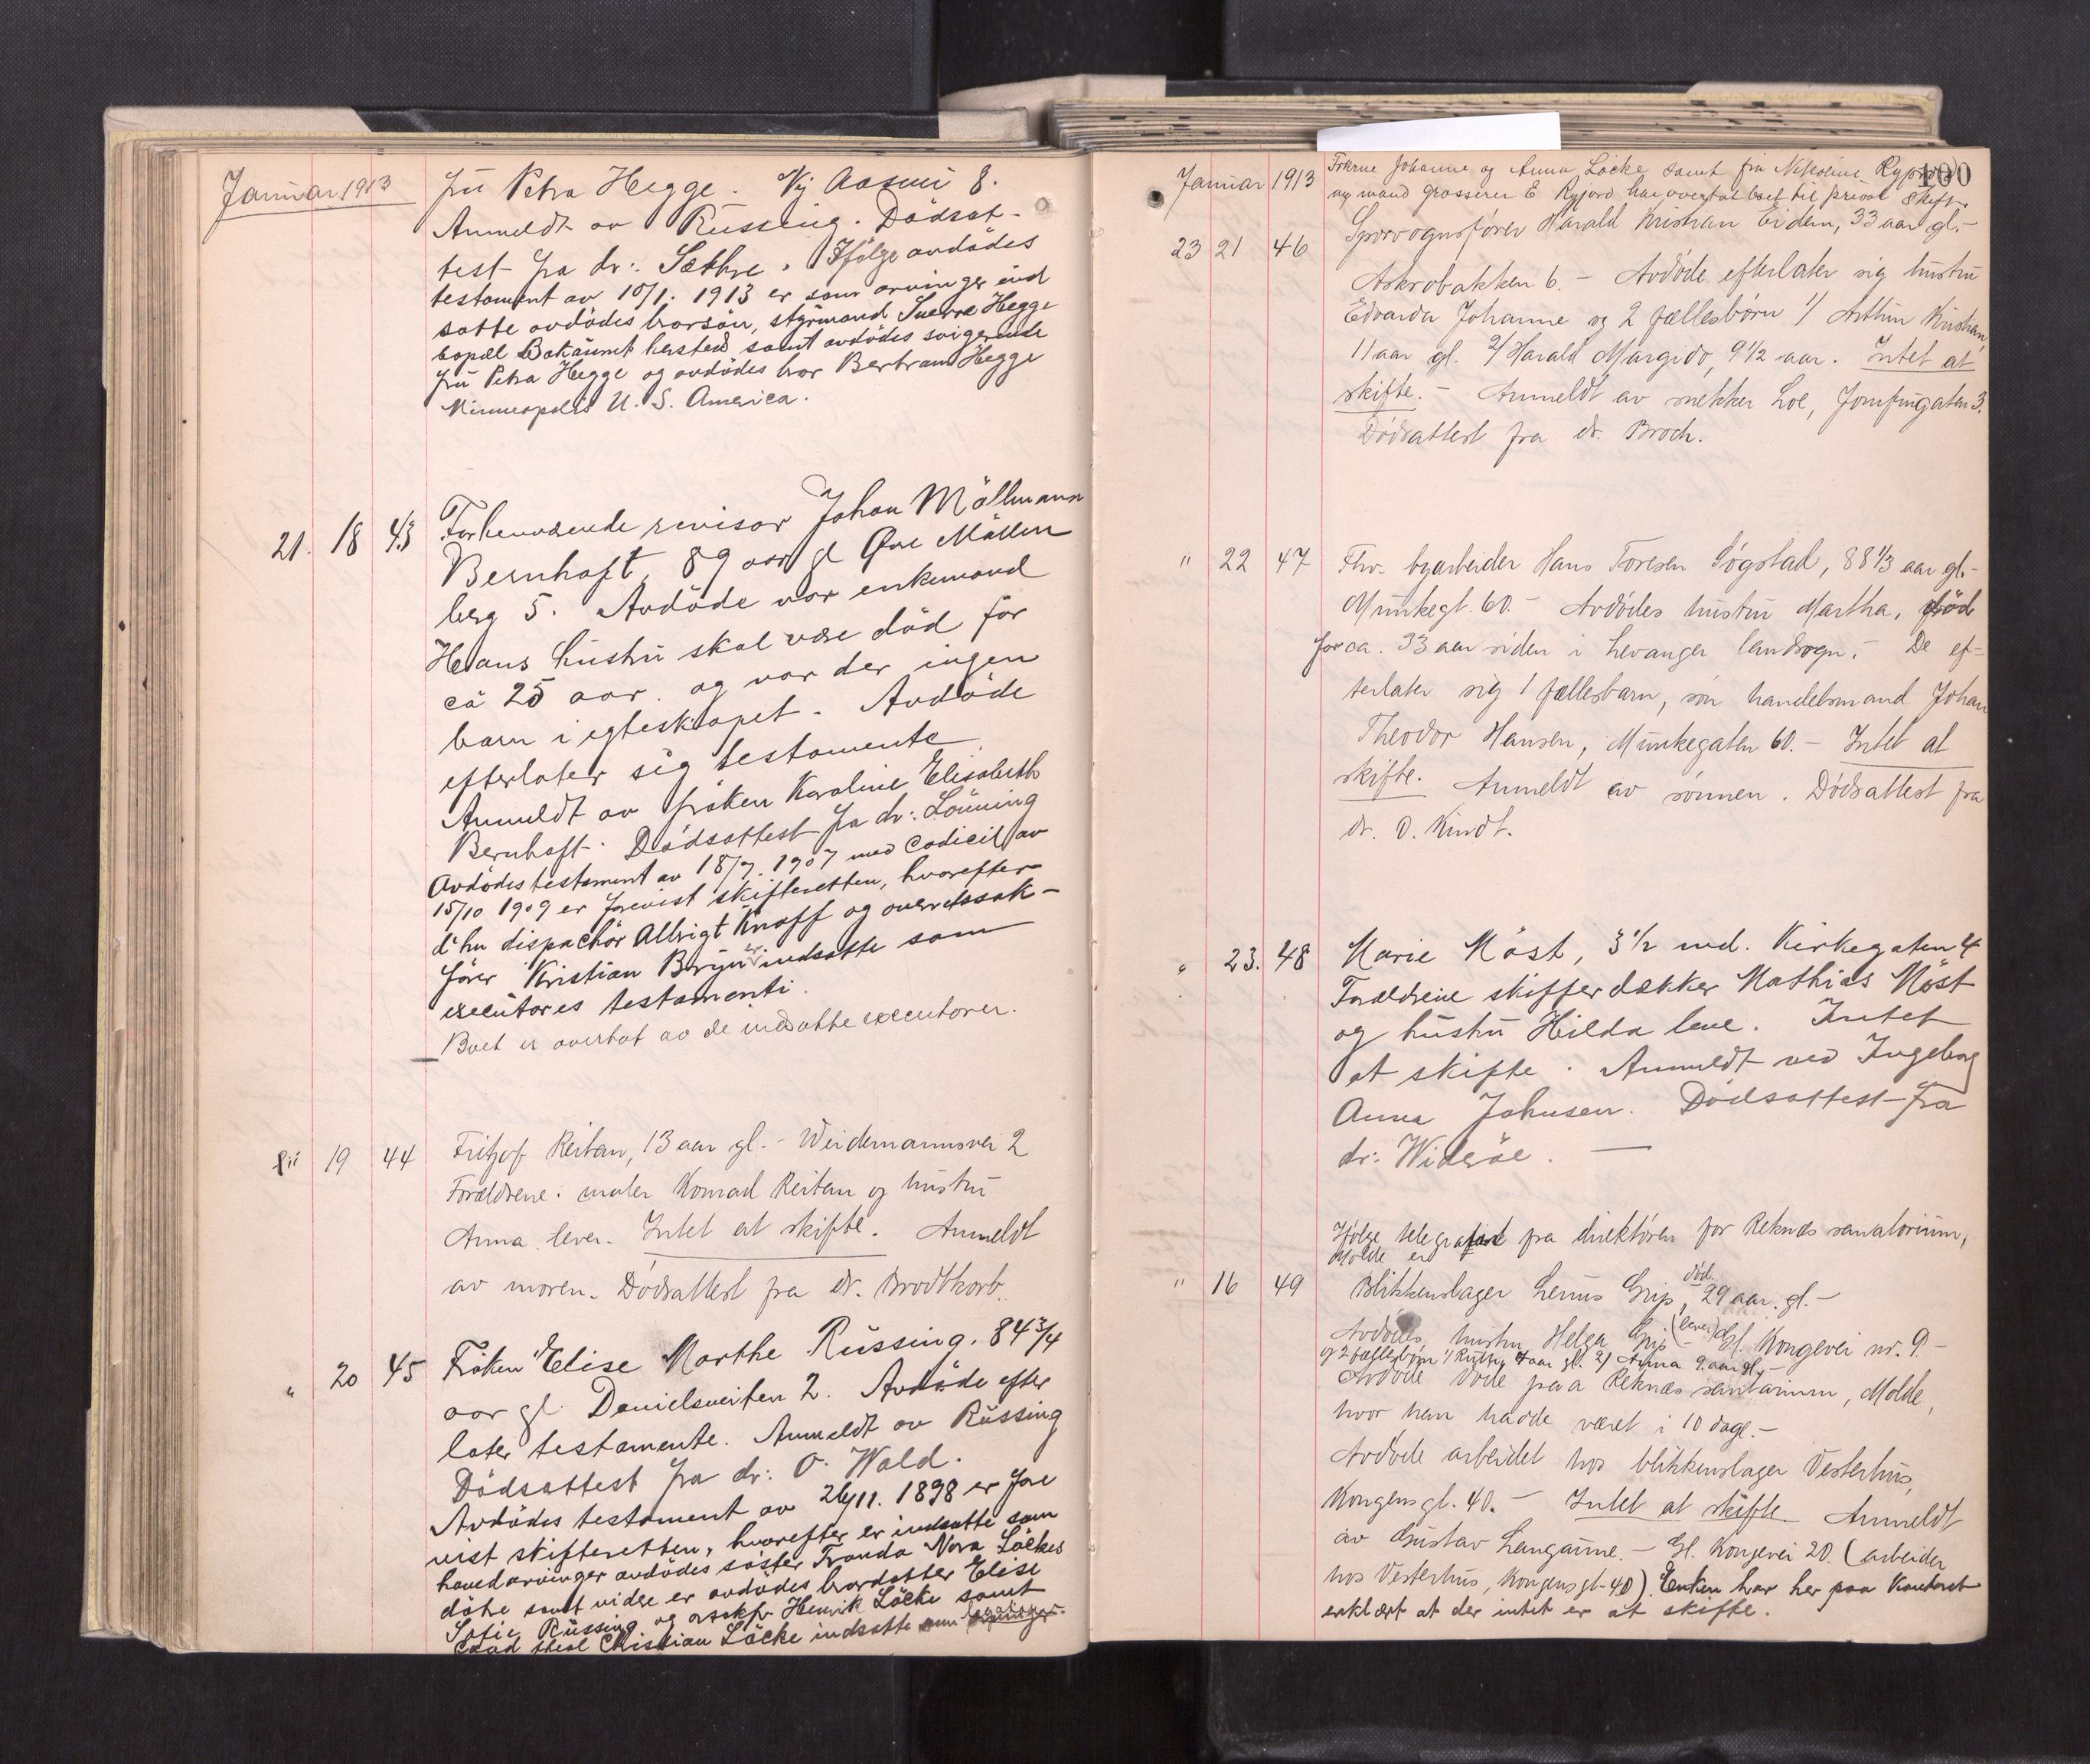 Januar 1913
fru Petra Hegge. Ny Aasvei 8.
Anmeldt av Rüssing. Dödsat-
test fra dr: Sæthre. Ifölge avdödes
testament av 10/1. 1913 er som arvinger ind
satte avdödes brorsön, styrmand Sverre Hegge
bopæl Bakaunet hersteds samt avdödes svigerinde
fru Petra Hegge og avdödes bror Bertram Hegge
Minneapolis U. S. America.
21. 18 43 Forhenværende revisor Johan Möllmann
Bernhoft, 89 aar gl Øvre Möllen
berg 5. Avdöde var enkemand
Hans hustru skal være död for
ca 25 aar og var der ingen
barn i egteskapet. Avdöde
efterlater sig testamente
Anmeldt av fröken Karoline Elisabeth
Bernhoft. Dödsattest fra dr: Lönning
Avdödes testament av 18/7. 1907 med codicil av
15/10 1909 er forevist skifteretten, hvorefter
d'hrr dispachör Albrigt Knoff og overretssak-
förer Kristian Bryn er indsatte som
executores testamenti.
Boet er overtat av de indsatte executorer.
19 44 Fritjof Reitan, 13 aar gl. - Weidemannsvei 2
Forældrene: maler Konrad Reitan og hustru
Anna lever. Intet at skifte. Anmeldt
av moren. Dödsattest fra dr. Brodtkorb.
" 20 45 Fröken Elise Marthe Rüssing. 84 3/4
aar gl. Danielsveiten 2. Avdöde efter
later testamente. Anmeldt av Rüssing
Dödsattest fra dr: O. Wald.
Avdödes testament av 26/11. 1898 er fore
vist skifteretten, hvorefter er indsatte som
hovedarvinger avdödes söster Tranda Nora Löckes
döttre samt videre er avdödes brordatter Elise
Sofie Rüssing og orsakfr. Henrik Löcke samt
cand theol Christian Löcke indsatte som
Januar 1913 Frkrne Johanne og Anna Löcke samt fru Nikoline Ryjord
og mand grosserer E Ryjord har overtat boet til privat skifte
100
23 21 46 Sporvognsfører Harald Kristian Eidem, 33 aar gl.-
Askrobakken 6. - Avdöde efterlater sig hustru
Edvarda Johanne og 2 fællesbörn 1/ Arthur Kristian,
11 aar gl. 2/ Harald Margido, 9 1/2 aar. Intet at
skifte. - Anmeldt av snekker Loe, Jomfrugaten 3.
Dödsattest fra dr. Broch.
" 22 47 Fhv. byarbeider Hans Toresen Søgstad, 88 1/3 aar gl.-
Munkegt. 60. - Avdödes hustru Martha, död
for ca. 33 aar siden i Levanger landsogn. - De ef-
terlater sig 1 fællesbarn, sön handelsmand Johan
Theodor Hansen, Munkegaten 60. - Intet at
skifte. Anmeldt av sönnen. Dödsattest fra
dr. O. Kindt.
" 23. 48 Marie Möst, 3 1/2 md. Kirkegaten 4
Forældrene skifferdækker Mathias Möst
og hustru Hilda leve. Intet
at skifte. Anmeldt ved Ingeborg
Anna Johnsen. Dödsattest fra
dr: Wideröe. —
Ifölge telegrafert fra direktören for Reknæs sanatorium,
Molde er
" 16 49 Blikkenslager Lenus Grip, död. 29 aar. gl. -
Avdödes hustru Helga Grip (lever) Gl. Kongevei nr. 9 -
og 2 fællesbörn 1/ Ruth, 4 aar gl. 2/ Anna 2 aar gl. -
Avdöde döde paa Reknæs sanitarium, Molde,
hvor han hadde været i 10 dage. -
Avdöde arbeidet hos blikkenslager Vesterhus,
Kongensgt. 40. - Intet at skifte. Anmeldt
av Gustav Langaune. - Gl. Kongevei 20. (arbeider
hos Vesterhus, Kongensgt-40). Enken har her paa kontoret
erklært at der intet er at skifte.